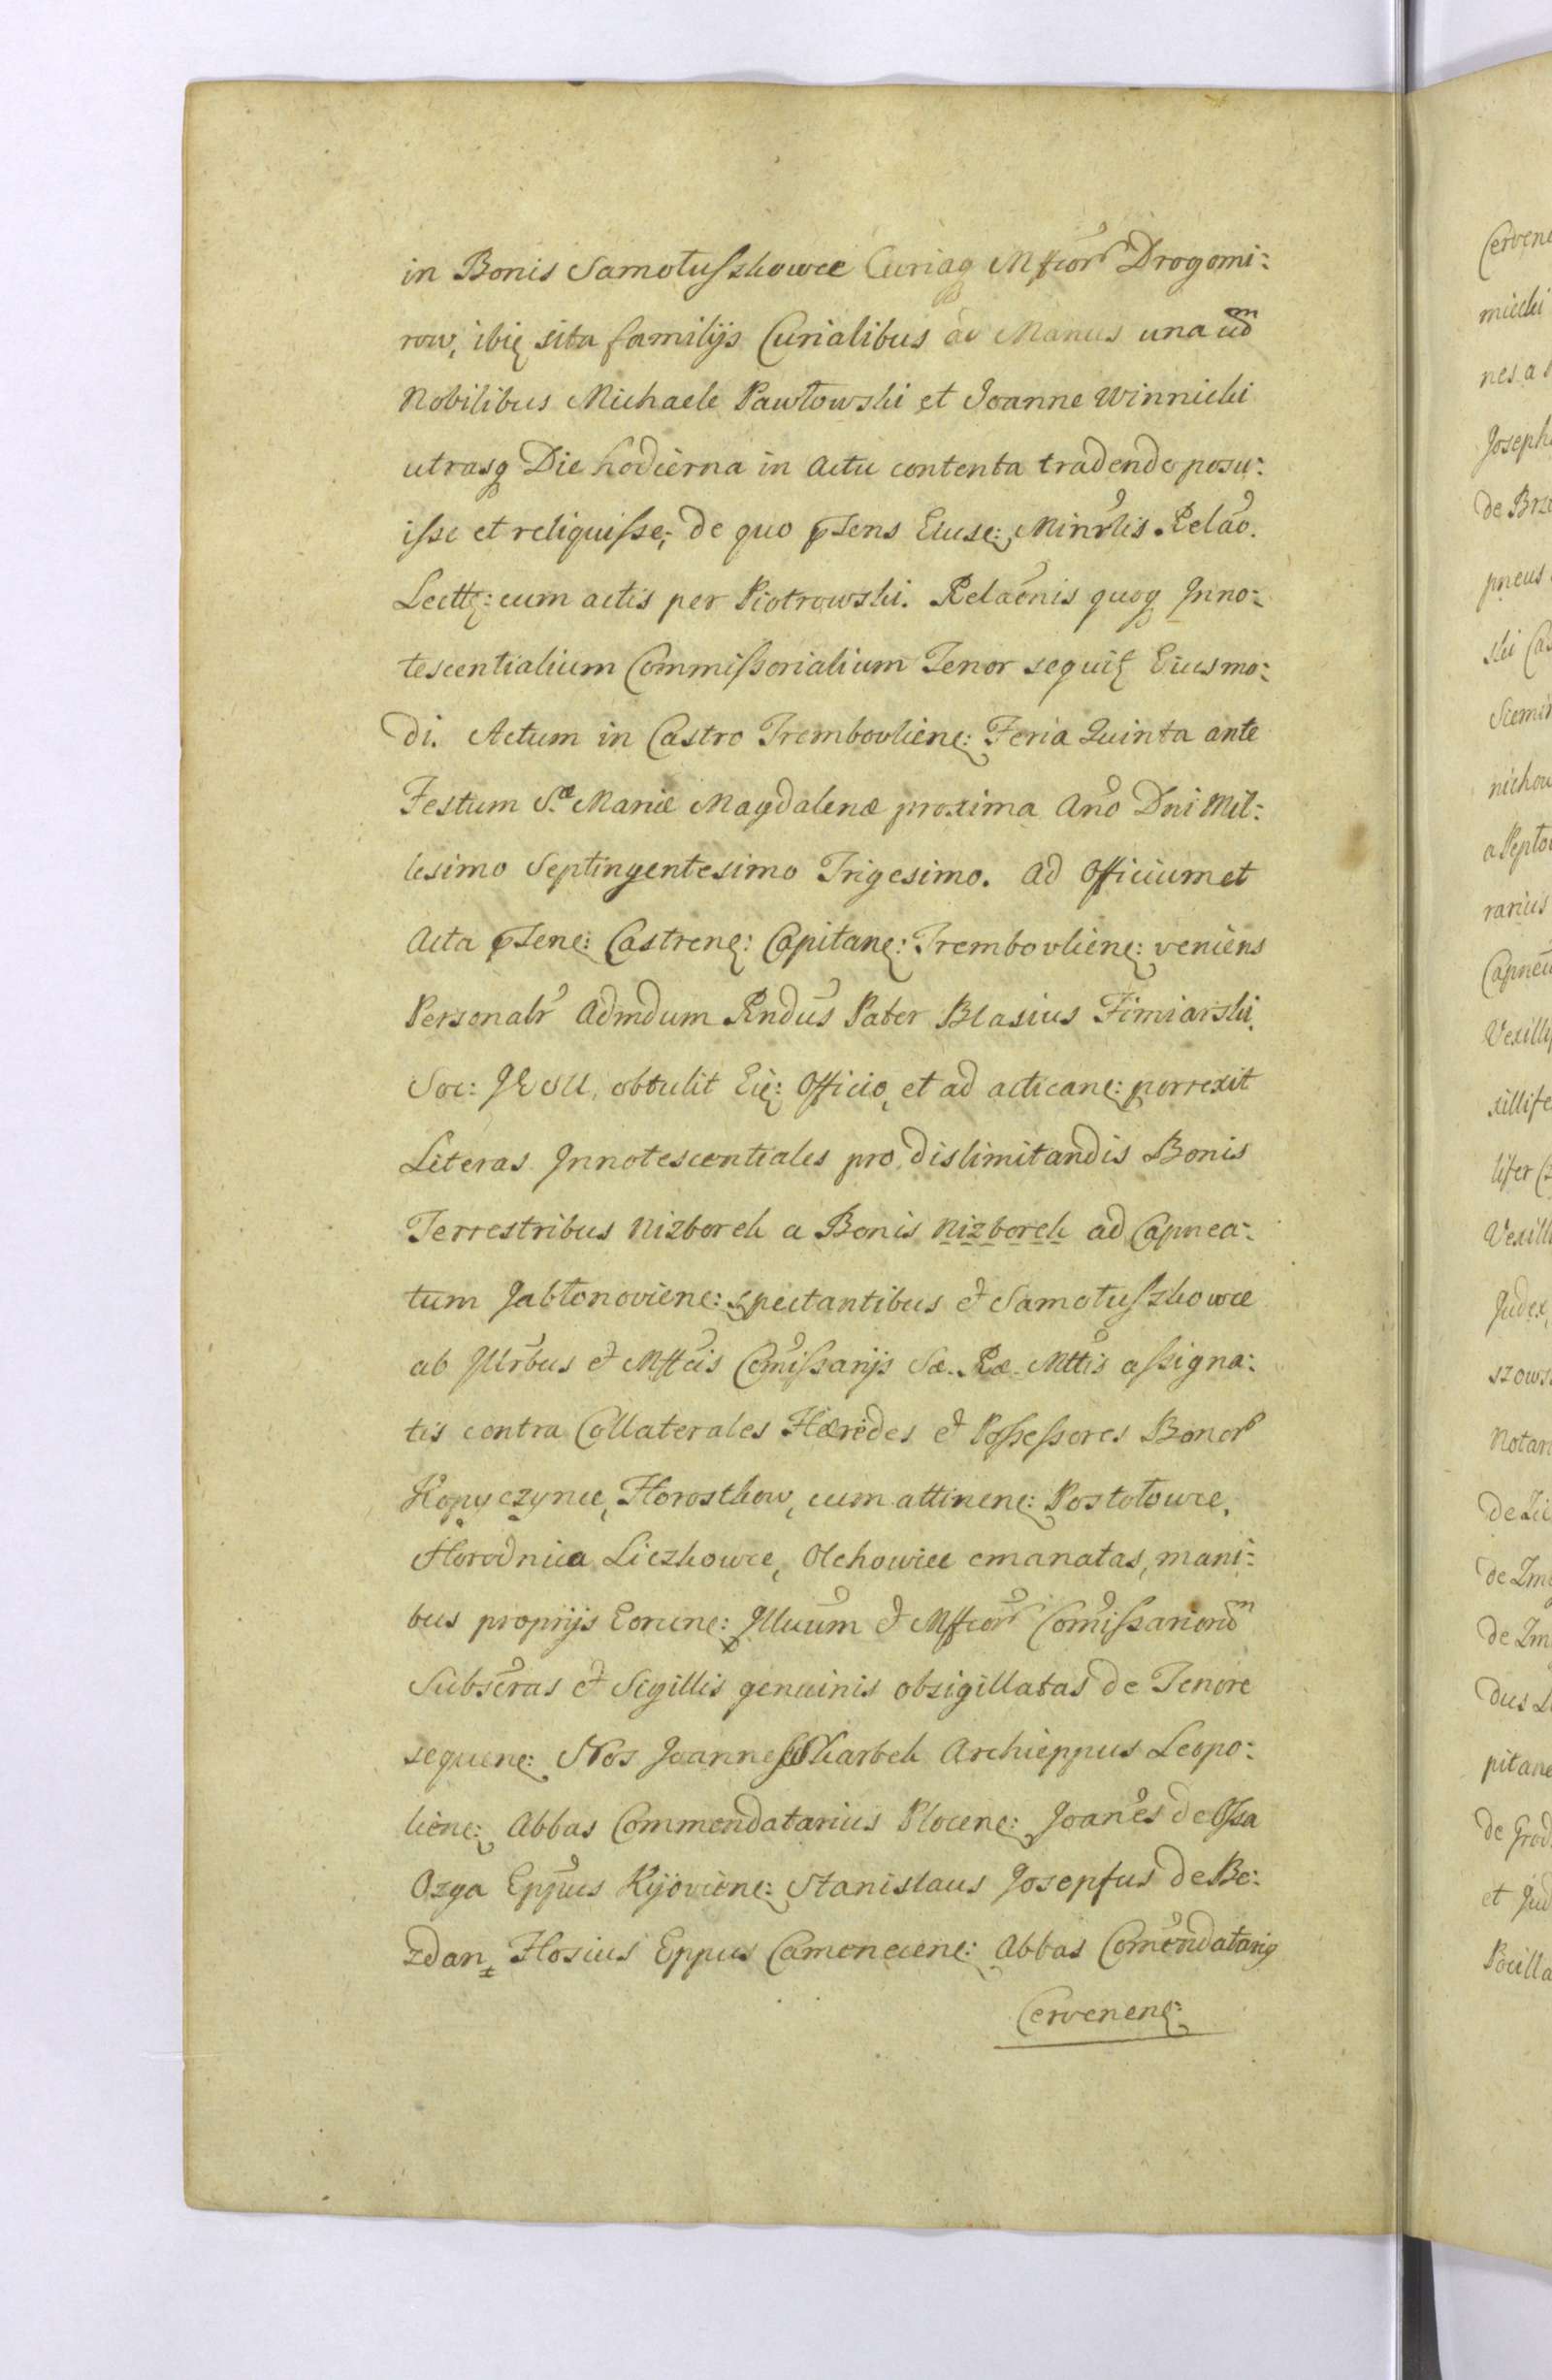 in Bonis Samotuszkowce Curiaq Mffcor Drogomi:
row, ibiq sita familijs Curialibus ac Manus una cum
Nobilibus Michaele Pawłowski et Joanne Winnicki
utrasq Die hodierna in Actu contenta tradendo posu:
isse et reliquisse, de quo ptens Eiusq: Minrlis Relao.
Lectq: cum actis per Piotrowski. Relaonis quoq Inno:
tescentialium Commissorialium Tenor sequit Eiusmo:
di. Actum in Castro Trembovlienq: Feria Quinta ante
Festum S.æ Mariæ Magdalenæ proxima Ano Dni Mil:
lesimo Septingentesimo Trigesimo. Ad Officium et
Acta ptenq: Castrenq: Capitanq: Trembovlienq: veniens
Personalr Admdum Rndus Pater Blasius Fimiarski
Soc: JESU, obtulit Eiq: Officio, et ad acticanq: porrexit
Literas Innotescentiales pro dislimitandis Bonis
Terrestribus Nizborek a Bonis Nizborek ad Capnea:
tum Jabłonovienq: spectantibus et Samotuszkowce
ab Illrbus et Mffcis Comissarijs Sæ. Ræ. Mttis assigna:
tis contra Collaterales Hæredes et Possessores Bonor
Kopyczynce, Horostkow, cum attinenq: Postołowce,
Horodnica Liczkowce, Olchowice emanatas, mani:
bus proprijs Eorunq: Illuum et Mffcor Comissariorum
Subscras et Sigillis genuinis obsigillatas de Tenore
sequenq: Nos Joannes Skarbek Archieppus Leopo:
lienq: Abbas Commendatarius Plocenq: Joanes de Ossa
Ozga Eppus Kijovienq: Stanislaus Josepfus de Be:
zdan, Hosius Eppus Camenecenq: Abbas Comendatariq
Cervenenq:
Cervene
micki
nes a
Joseph
de Brze
pneus
ski Ca
Siemi
nichow
a Septo
rarius
Capneu
Vexilli
xillife
lifer
Vexill
Judex,
szows
Notar
de Zie
de Zm
de Zm
dus L
pitane
de Grod
et Jud
Pocilla